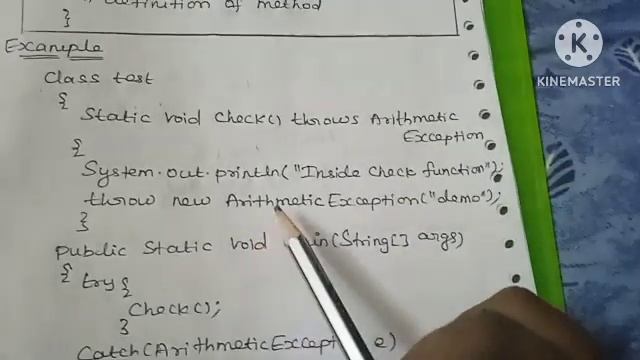 definition of method
}
Example
Class test
{
Static void Check() throws Arithmetic
Exception
{
System.out.println("Inside Check function");
throw new ArithmeticException("demo");
}
public Static void in(String[] args)
{ try {
Check();
}
Catch(ArithmeticExcept e)
KINEMASTER